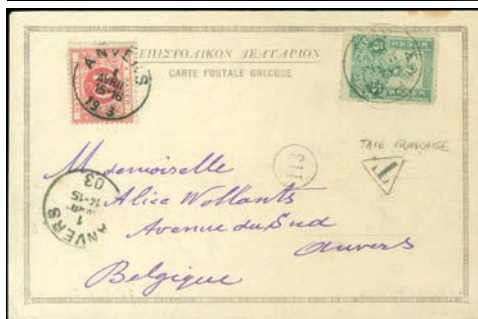 ΕΠΙΣΤΟΛΙΚΟΝ ΔΕΛΤΑΡΙΟΝ
CARTE POSTALE GRECQUE
ANVERS
1
AVRIL
15-16
19 3
TAXE FRANÇAISE
T
113
Mademoiselle
Alice Wollants
Avenue du Sud
Anvers
Belgique
ANVERS
1
14-15
03